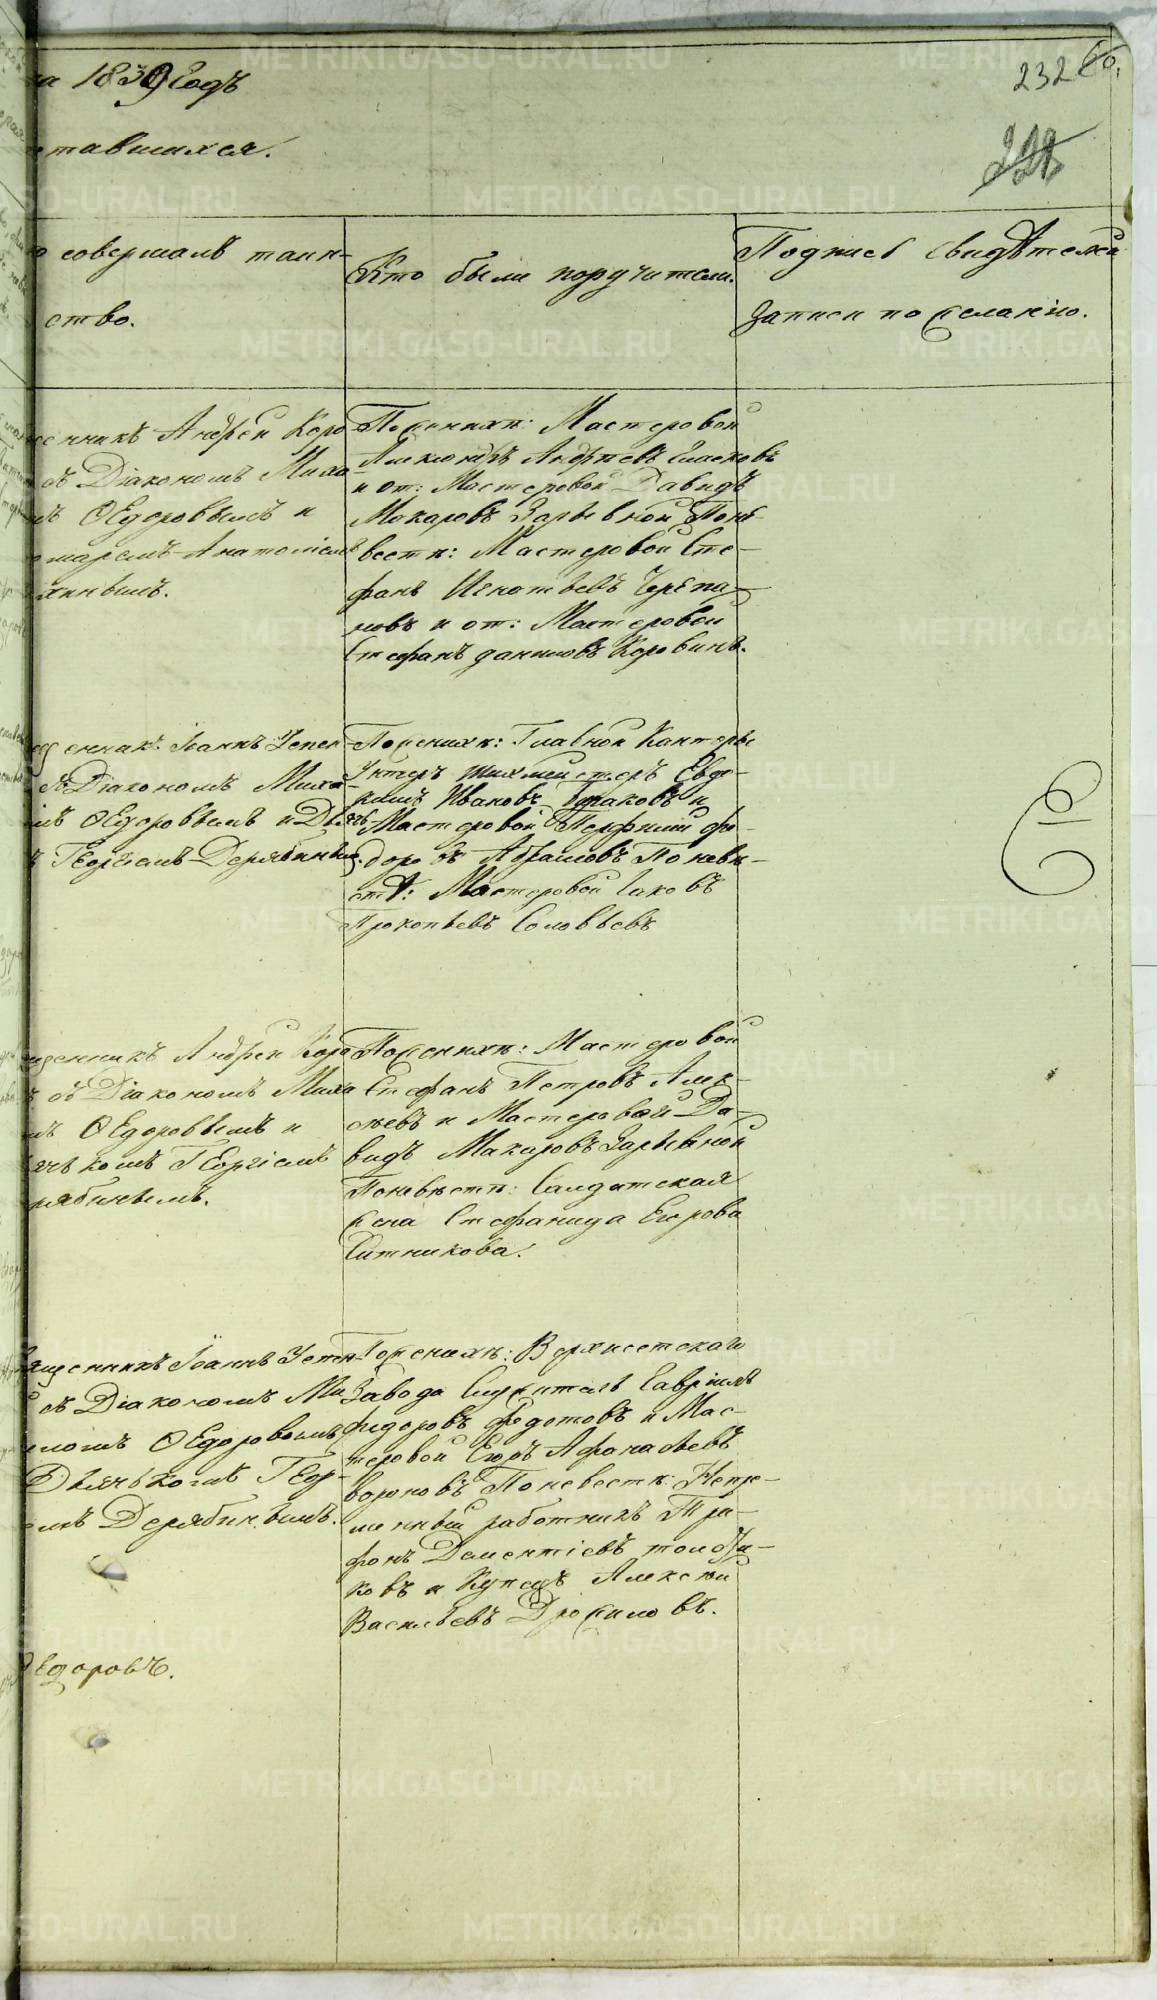 на 1839 Годъ
232
етавшихся.
совершалъ таин-
ство.
Кто были поручители.
Подписъ свидѣтелей
записи по желанію.
Андрей Коро
съ Діакономъ Миха
Ѳедоровымъ и
Анатоліемъ
Пожениху: Мастеровой
Андреевъ
и от: Мастеровой Давидъ
Макаровъ Зарывной Поне
весте: Мастеровой Сте-
фанъ Игнатьевъ Черепа-
новъ и от: Мастеровой
Стефанъ даниловъ Коровинъ.
Іоаннъ
Діакономъ Миха-
Ѳедоровымъ и Дьяч
Георгіемъ Дерябинымъ.
Пожениху: Главной Канторы
Унтеръ шихмейстеръ Евдо-
кимъ Ивановъ и
Мастеровой Перфилий фе-
доровъ Абрамовъ Поневе-
стѣ: Мастеровой Іаковъ
Прокопьевъ Соловьевъ
щенникъ Андрей Коро
съ Діакономъ Миха
Ѳедоровымъ и
ячькомъ Георгіемъ
рябинымъ.
Пожениху: Мастеровой
Стефанъ Петровъ Алек-
сѣевъ и Мастеровой Да-
видъ Макаровъ Зарывной
Поневѣсте: Салдатская
жена Стефанида Егорова
Ситникова.
ященникъ Іоаннъ
съ Діакономъ Ми
Ѳедоровымъ
Дьячькомъ Геор-
емъ Дерябинымъ.
Пожениху: Верхисетскаго
Завода Служитель Гавріилъ
фидоровъ федотовъ и Мас-
теровой Егоръ Афонасьевъ
вороновъ Поневесте: Непре-
менный работникъ Три-
фонъ Дементіевъ
ковъ и Купецъ Алексѣй
Васильевъ Дрожиловъ.
Ѳедоровъ.